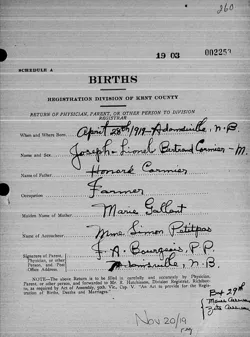 260
19 03 002257
SCHEDULE A
BIRTHS
REGISTRATION DIVISION OF KENT COUNTY
RETURN OF PHYSICIAN, PARENT, OR OTHER PERSON TO DIVISION
REGISTRAR
When and Where Born April 28th/919-Adamsville, N.B.
Name and Sex Joseph Lionel Bertrand Cormier - M.
Name of Father Honoré Cormier
Occupation Farmer
Maiden Name of Mother Marie Gallant
Name of Accoucheur Mme. Simon Patitpas
Signature of Parent, F. A. Bourgeois, P.P.
Physician, or other
Person, and Post Adamsville, N.B.
Office Address.
NOTE.—The above Return is to be filled in carefully and accurately by Physician,
Parent, or other person, and forwarded to Mr. Hutchinson, Division Registrar,
as required by Act of Assembly, Cap. V. "An Act to provide for the Registration
of Births, Deaths and Marriages."
Bapt 29th
Nov 20/19